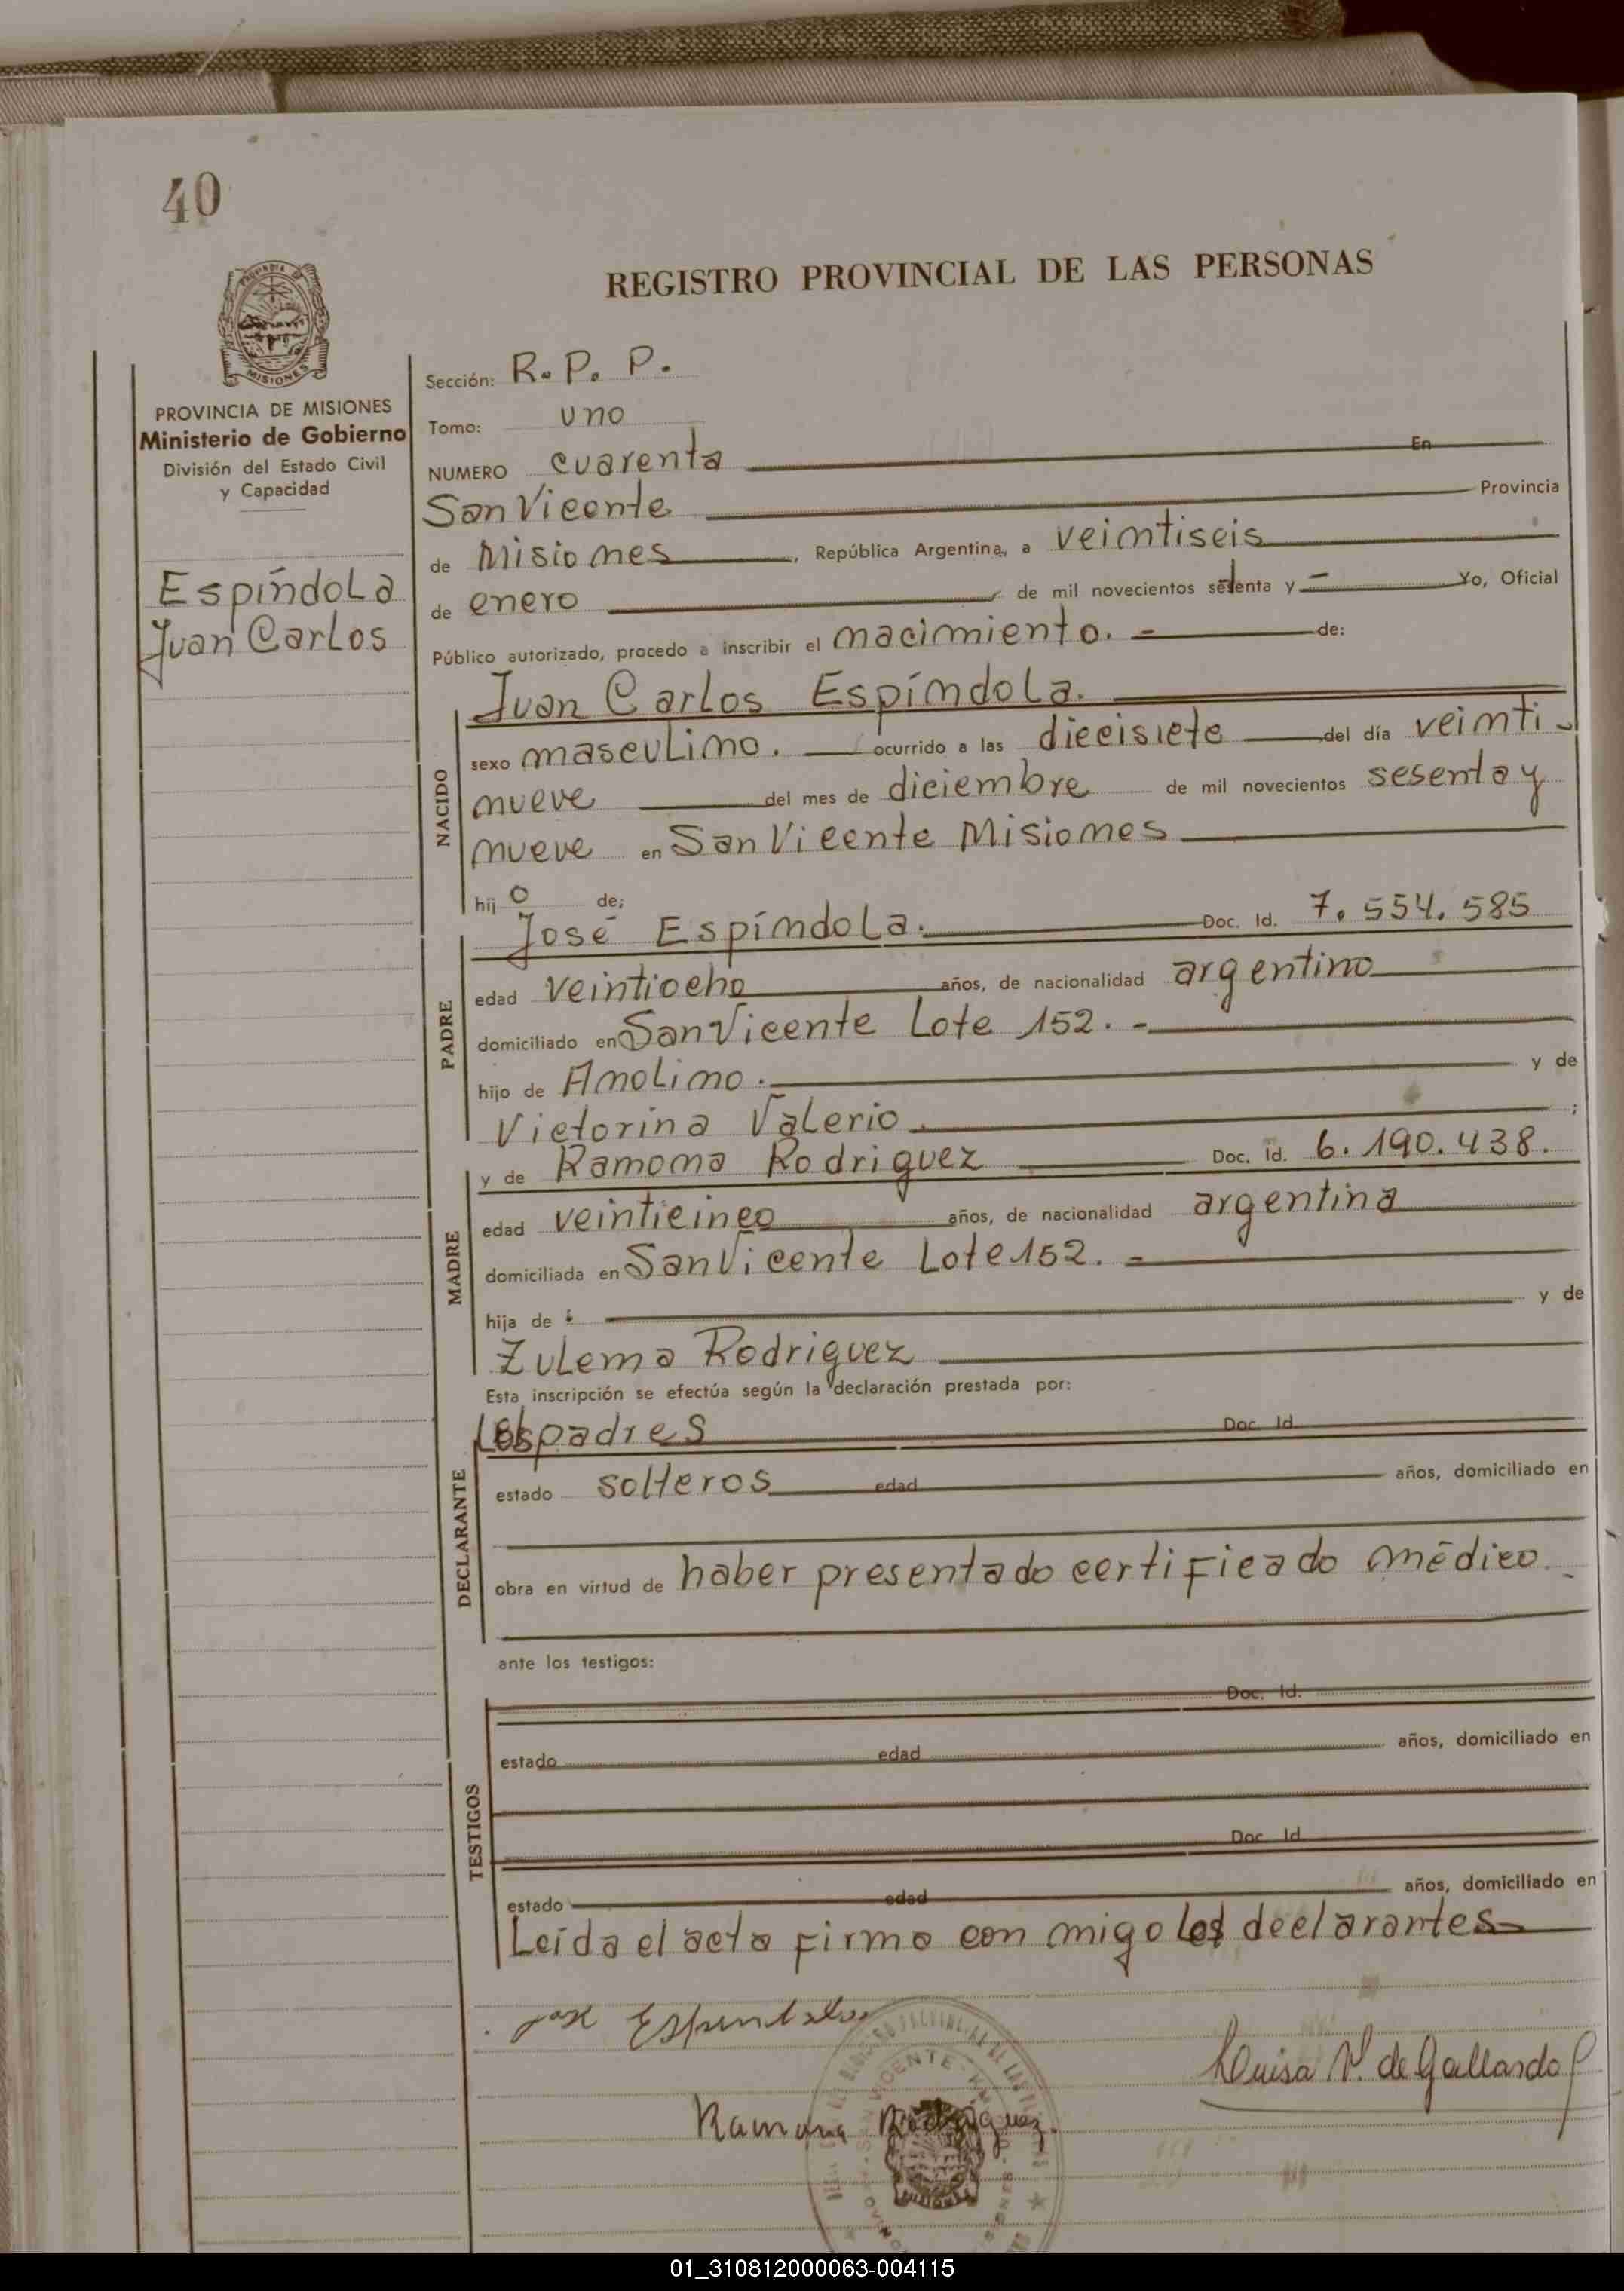 40
REGISTRO PROVINCIAL DE LAS PERSONAS
PROVINCIA DE MISIONES
Ministerio de Gobierno
División del Estado Civil
y Capacidad
Espíndola
Juan Carlos
Sección: R. P. P.
Tomo: uno
NUMERO cuarenta En
San Vicente Provincia
de Misiones, República Argentina, a veintiseis
de enero de mil novecientos setenta y - Yo, Oficial
Público autorizado, procedo a inscribir el nacimiento. - de:
Juan Carlos Espíndola.
NACIDO
sexo masculino. ocurrido a las diecisiete del día veinti-
nueve del mes de diciembre de mil novecientos sesenta y
nueve en San Vicente Misiones
hijo de;
José Espíndola. Doc. Id. 7.554.585
PADRE
edad veintiocho años, de nacionalidad argentino
domiciliado en San Vicente Lote 152. -
hijo de Anolino. y de
Victorina Valerio. ;
y de Ramona Rodriguez Doc. Id. 6.190.438.
MADRE
edad veinticinco años, de nacionalidad argentina
domiciliada en San Vicente Lote 152. -
hija de y de
Zulema Rodriguez
Esta inscripción se efectúa según la declaración prestada por:
Los padres Doc. Id.
DECLARANTE
estado solteros edad años, domiciliado en
obra en virtud de haber presentado certificado médico.
ante los testigos:
Doc. Id.
TESTIGOS
estado edad años, domiciliado en
Doc. Id.
estado edad años, domiciliado en
Leída el acta firma con migo los declarantes
José Espindola
Luisa V. de Gallardo
Ramona Rodríguez.
SAN VICENTE
MISIONES
01_310812000063-004115